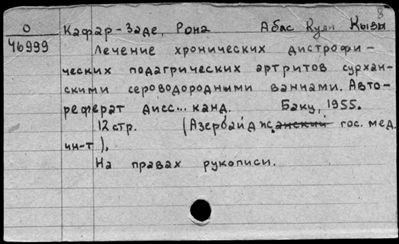 О Кафар-Заде, Рона Абас Кули Кызы
46999 Лечение хронических дистрофи-
ческих подагрических артритов сурхан-
скими сероводородными ваннами. Авто-
реферат дисс... канд. Баку, 1955.
12 стр. (Азербайджанский гос. мед.
ин-т).
На правах рукописи.